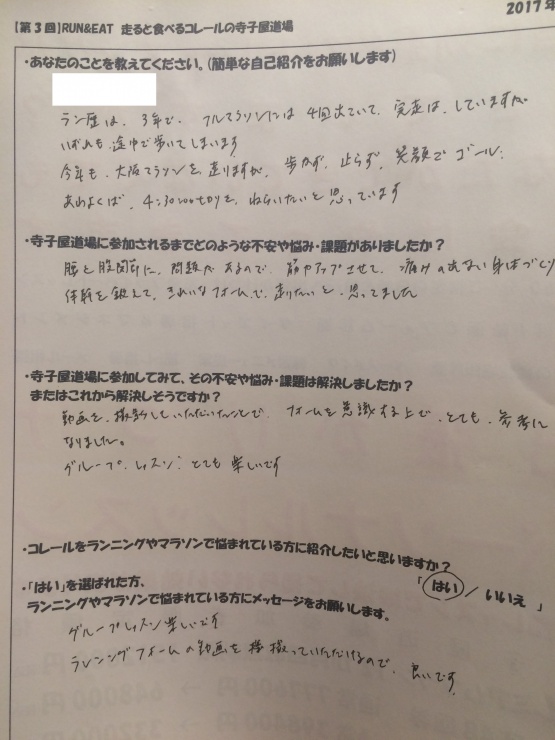 2017年
【第3回】RUN&EAT 走ると食べるコレールの寺子屋道場
・あなたのことを教えてください。(簡単な自己紹介をお願いします)
ラン歴は、3年で、フルマラソンには4回出ていて、完走は、していますが
いずれも、途中で歩いてしまいます
今年も、大阪マラソンを走りますが、歩かず、止らず、笑顔でゴール!
あわよくば、4:30'00"切りを、ねらいたいと思っています
・寺子屋道場に参加されるまでどのような不安や悩み・課題がありましたか?
腰と股関節に、問題があるので、筋力アップさせて、痛みの出ない身体づくり
体幹を鍛えて、きれいなフォームで、走りたいと、思ってました
・寺子屋道場に参加してみて、その不安や悩み・課題は解決しましたか?
またはこれから解決しそうですか?
動画を、撮影していただいたことで、フォームを意識する上で、とても、参考に
なりました。
グループレッスン!とても楽しいです
・コレールをランニングやマラソンで悩まれている方に紹介したいと思いますか?
「はい/いいえ」
・「はい」を選ばれた方、
ランニングやマラソンで悩まれている方にメッセージをお願いします。
グループレッスン楽しいです
ランニングフォームの動画を撮っていただけるので、良いです。